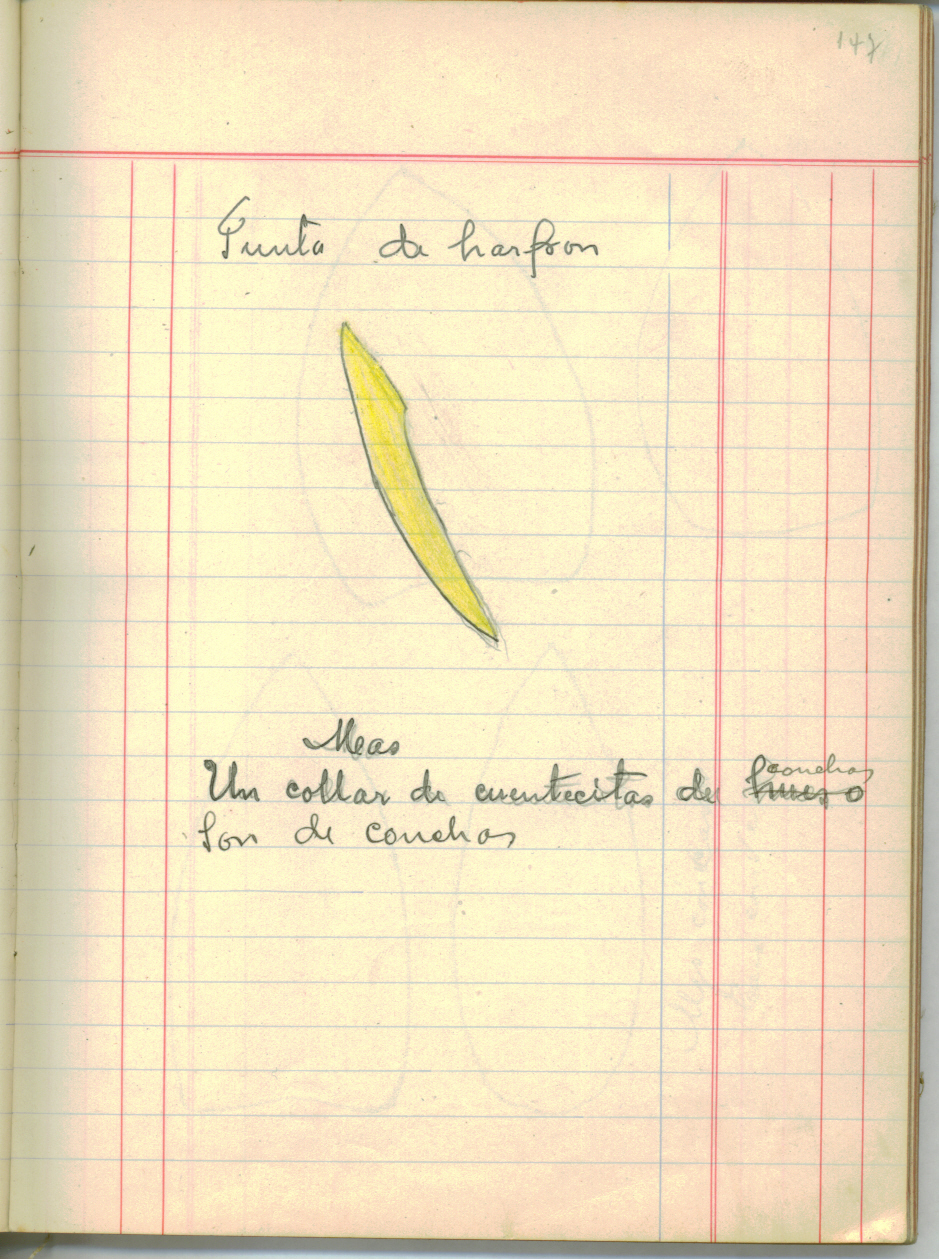 147
Punta de harpon
Meas
Un collar de cuentecitas de hueso conchas
Son de conchas